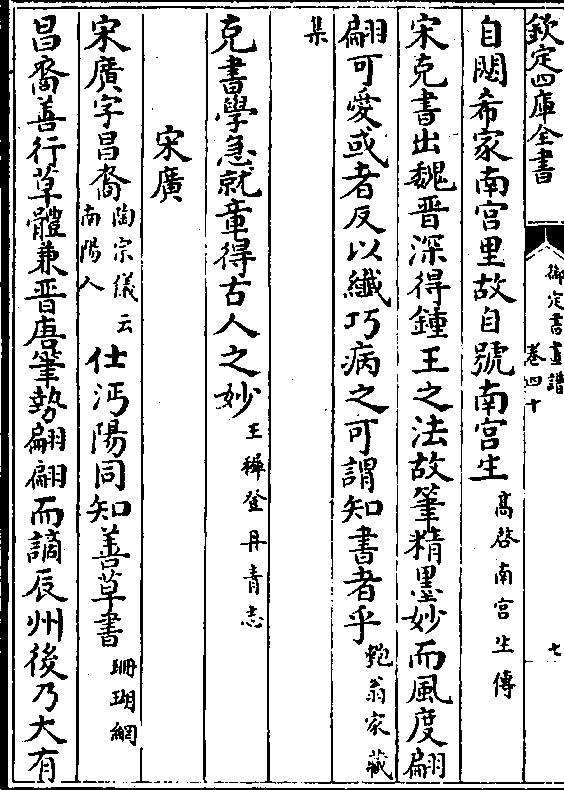 欽定四庫全書
御定書畫譜
卷四十
七
自閱希家南宮里故自號南宮生高啓南宮生傳
宋克書出魏晉深得鍾王之法故筆精墨妙而風度翩
翩可愛或者反以纎巧病之可謂知書者乎匏翁家藏
集
克書學急就章得古人之妙王穉登丹青志
宋廣
宋廣字昌裔陶宗儀云南陽人仕沔陽同知善草書珊瑚網
昌裔善行草體兼晉唐筆勢翩翩而謫辰州後乃大有